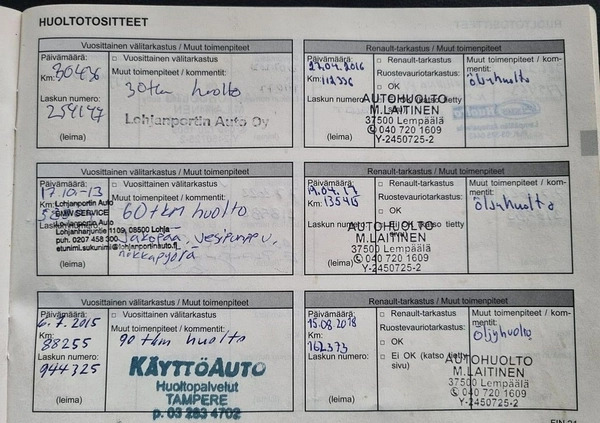 HUOLTOTOSITTEET
Vuosittainen välitarkastus / Muut toimenpiteet
Päivämäärä:
□ Vuosittainen välitarkastus
30436
Km:
Muut toimenpiteet / kommentit:
30tkm huolto
Laskun numero:
254147
Lohjanportin Auto Oy
(leima)
Renault-tarkastus / Muut toimenpiteet
Päivämäärä:
27.04.2016
Km:
112336
Laskun numero
(leima)
□ Renault-tarkastus
Ruostevauriotarkastus:
□ OK
Muut toimenpiteet / kom-
mentit:
öljyhuolto
AUTOHUOLTO
M.LAITINEN
37500 Lempäälä
✆ 040 720 1609
Y-2450725-2
Vuosittainen välitarkastus / Muut toimenpiteet
Päivämäärä:
17.10.-13
Km:
□ Vuosittainen välitarkastus
Muut toimenpiteet / kommentit:
60tkm huolto
Lohjanportin Auto
BMW SERVICE
Lohjanportin Auto
Lohjanharjuntie 1109, 08500 Lohja
puh. 0207 458 300
etunimi.sukunimi@lohjanportinauto.fi
Jakopää, vesipumppu,
nokkapyörä
(leima)
Renault-tarkastus / Muut toimenpiteet
Päivämäärä:
19.04.17
Km:
Laskun numero
(leima)
□ Renault-tarkastus
Ruostevauriotarkastus:
□ OK
□ Ei OK (katso tietty
sivu)
Muut toimenpiteet / kom-
mentit:
öljyhuolto
AUTOHUOLTO
M.LAITINEN
37500 Lempäälä
✆ 040 720 1609
Y-2450725-2
Vuosittainen välitarkastus / Muut toimenpiteet
Päivämäärä:
6.7.2015
Km:
88255
Laskun numero:
944325
(leima)
□ Vuosittainen välitarkastus
Muut toimenpiteet / kommentit:
90 tkm huolto
KÄYTTÖAUTO
Huoltopalvelut
TAMPERE
p. 03 283 4702
Renault-tarkastus / Muut toimenpiteet
Päivämäärä:
15.08.2018
Km:
162373
Laskun numero:
(leima)
□ Renault-tarkastus
Ruostevauriotarkastus:
□ OK
□ Ei OK (katso tietty
sivu)
Muut toimenpiteet / kom-
mentit:
öljyhuolto
AUTOHUOLTO
M.LAITINEN
37500 Lempäälä
✆ 040 720 1609
Y-2450725-2